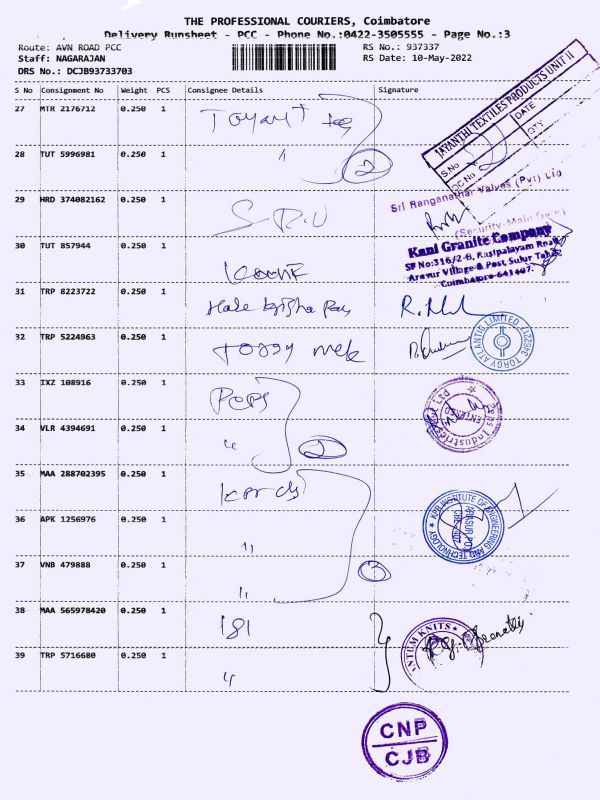 THE PROFESSIONAL COURIERS, Coimbatore
Delivery Runsheet - PCC - Phone No.:0422-3505555 - Page No.:3
Route: AVN ROAD PCC
RS No.: 937337
Staff: NAGARAJAN
RS Date: 10-May-2022
DRS No.: DCJB93733703
S No Consignment No Weight PCS Consignee Details Signature
27 MTR 2176712 0.250 1
JAYANTHI TEXTILES PRODUCTS UNIT II
S.No DATE
DC No QTY
28 TUT 5996981 0.250 1 " 2
29 HRD 374082162 0.250 1 S.R.V
Sri Ranganathar Valves (Pvt) Ltd
(Security-Main Gate)
30 TUT 857944 0.250 1
Kani Granite Company
SF No:316/2-B, Rasipalayam Road
Arasur Village & Post, Sulur Taluk
Coimbatore-641407.
31 TRP 8223722 0.250 1
32 TRP 5224963 0.250 1
33 IXZ 108916 0.250 1 Pops
34 VLR 4394691 0.250 1 " 2
Industries
ENTERED
35 MAA 288702395 0.250 1
36 APK 1256976 0.250 1 "
KPR INSTITUTE OF ENGINEERING AND TECHNOLOGY
37 VNB 479888 0.250 1 " 3
38 MAA 565978420 0.250 1 181
KNITS
39 TRP 5716680 0.250 1 "
CNP
CJB